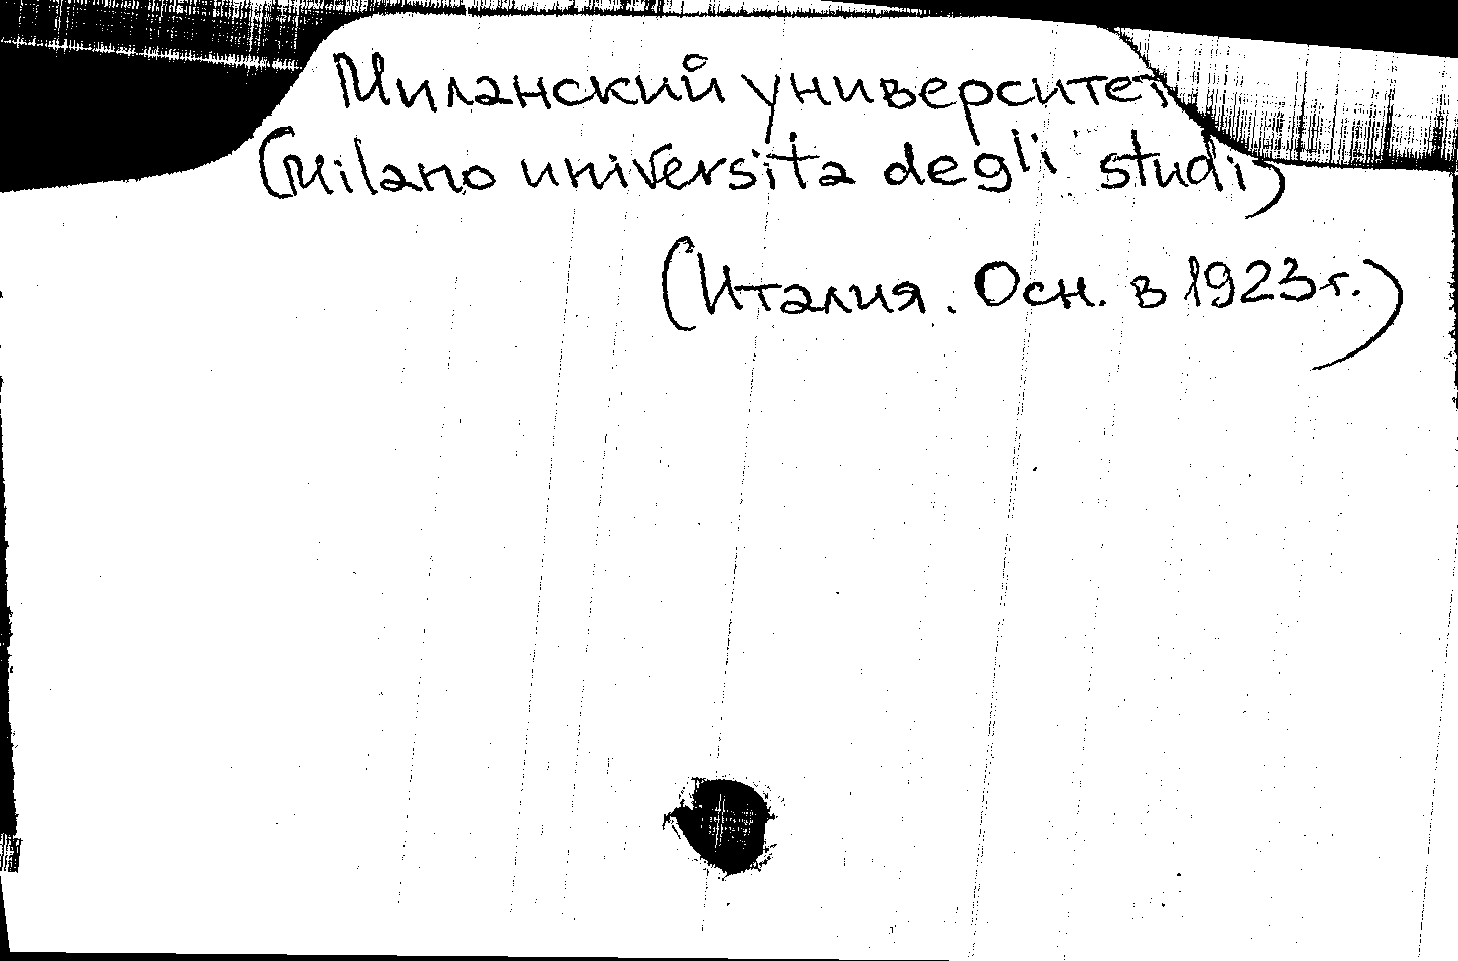 Миланский университет
(Milano universita degli studi)
(Италия. Осн. в 1923 г.)